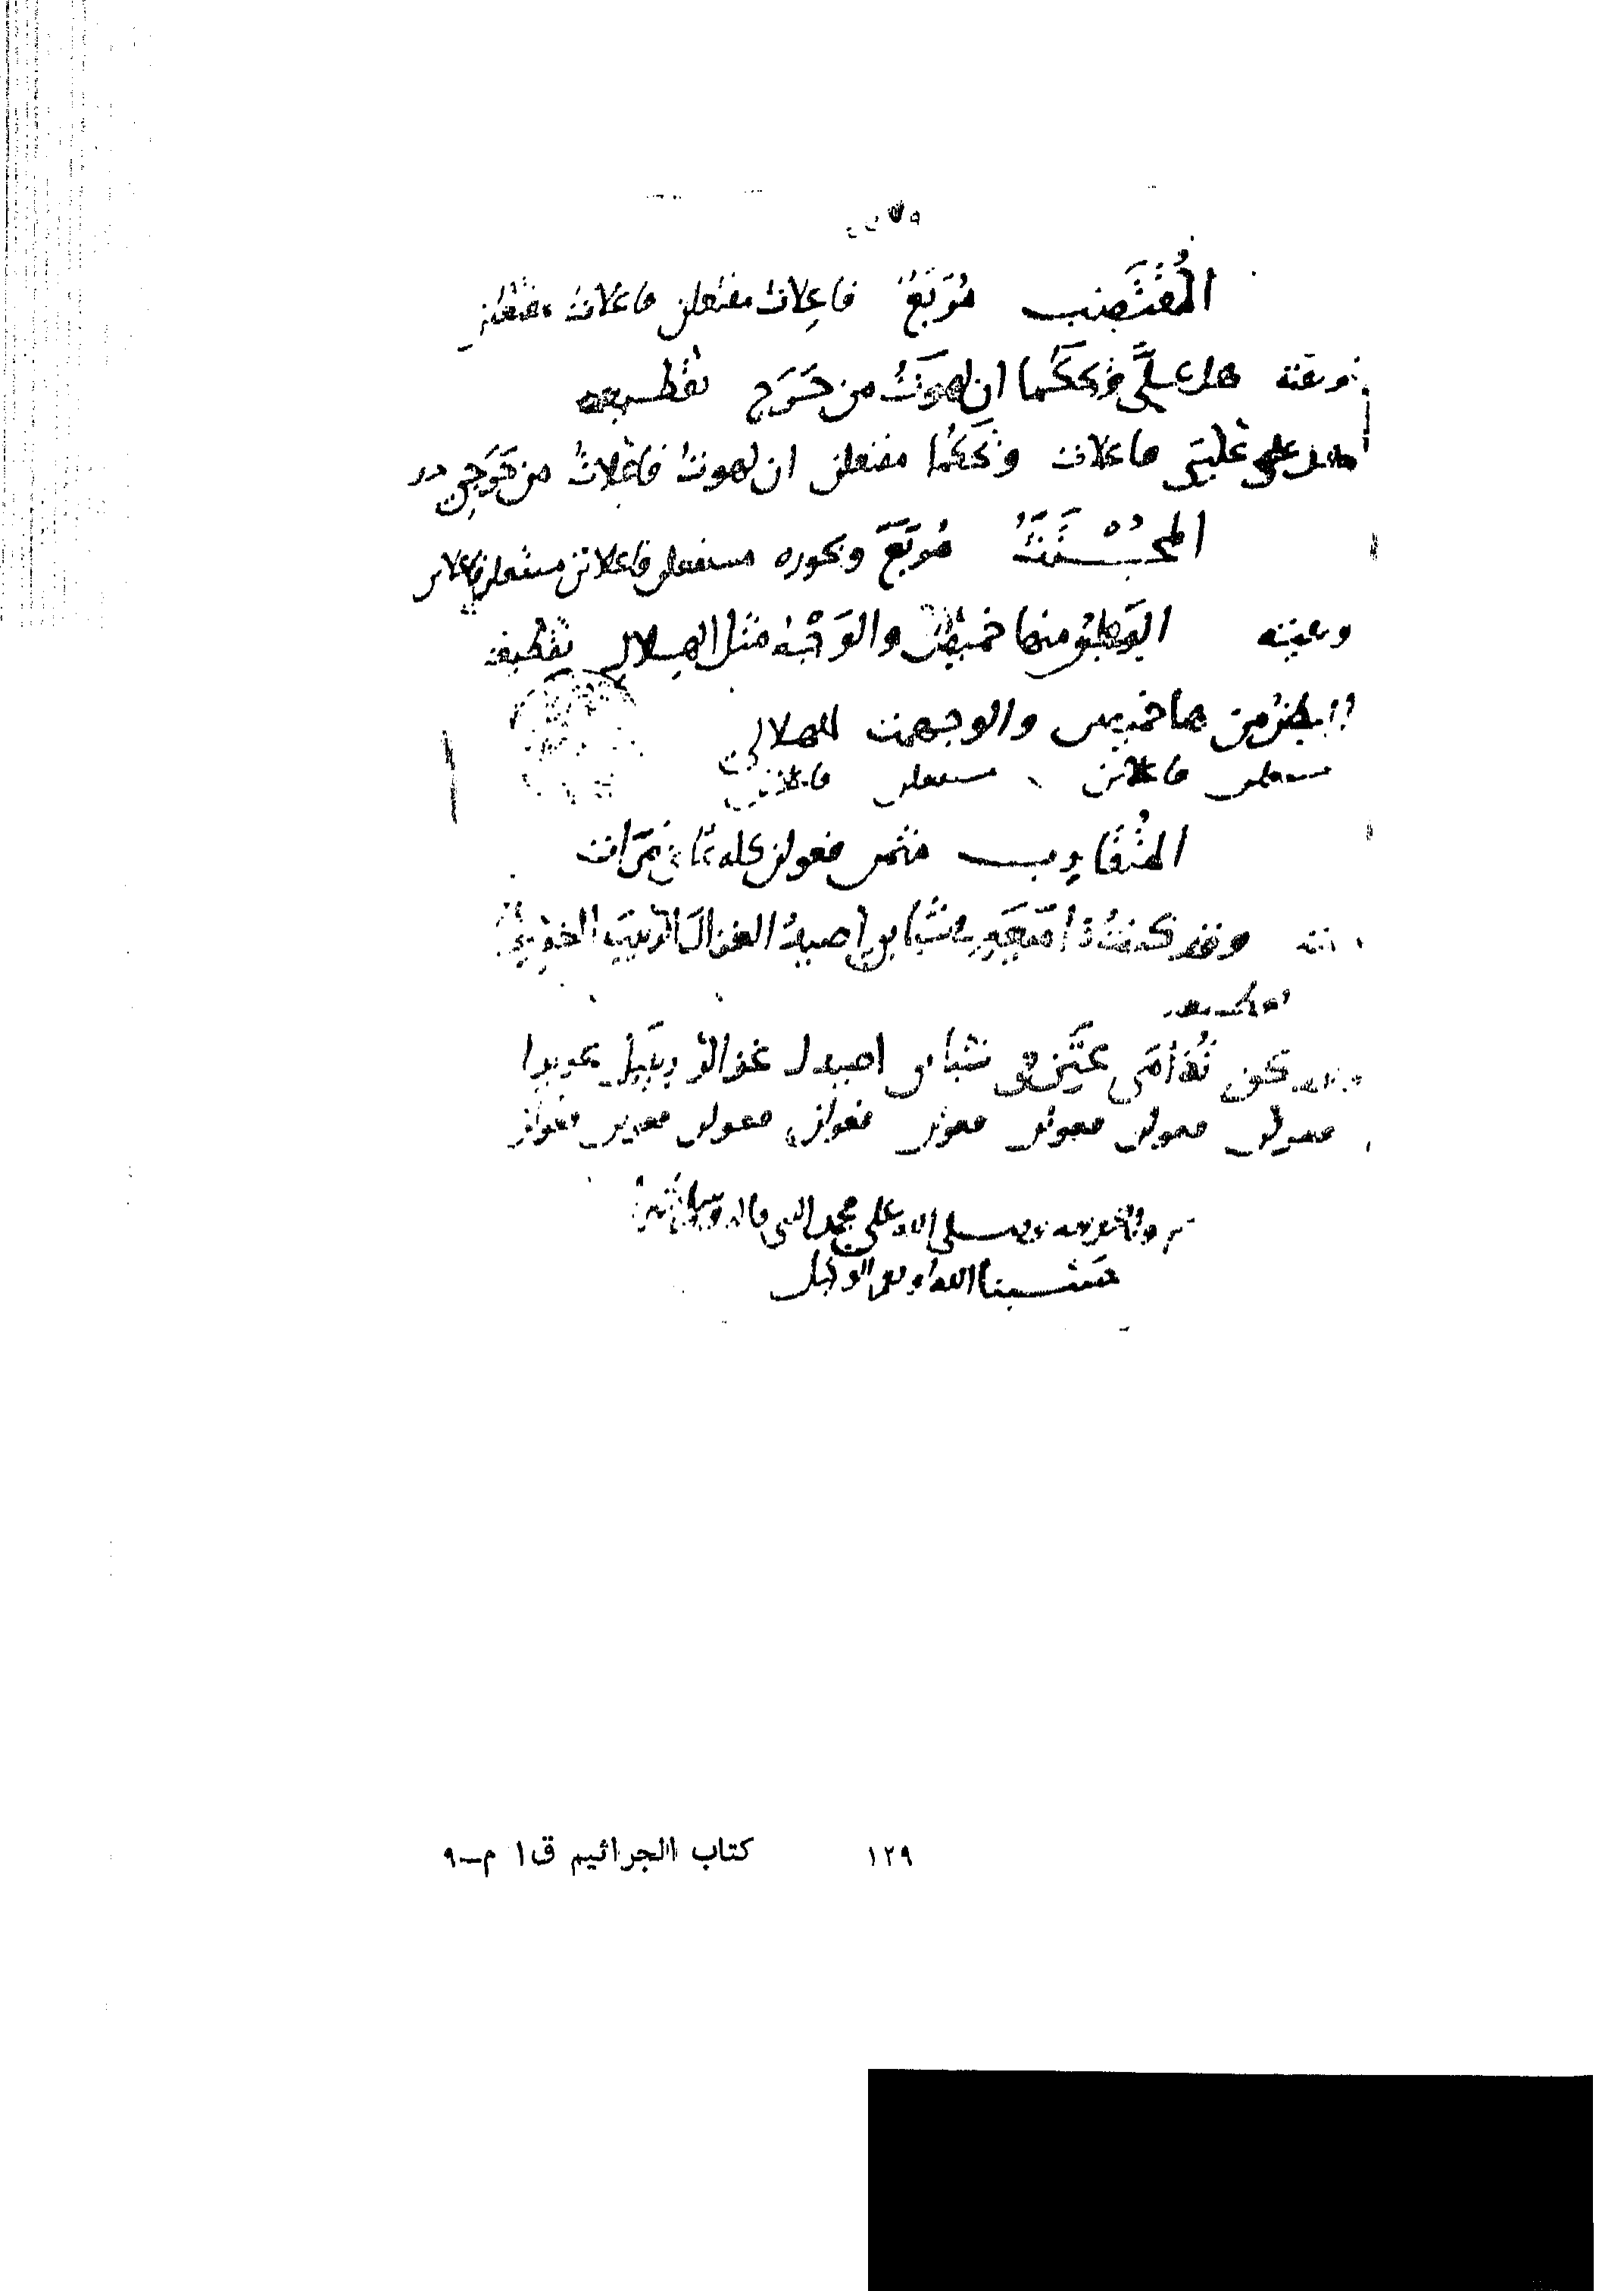 المُقْتَضِب مُرَبَّعٌ فاعِلاتُ مفتعلن فاعلاتُ مفتعلن
وبيته هل عليَّ ويحكما ان لهوتُ من حَرَج تقطيعه
هل علي فاعلات ويحكما مفتعلن ان لهوت فاعلاتُ من حَرَجِي
المجْتَثُّ مُرَبَّع مستفعلن فاعلاتن مستفعلن فاعلاتن
وبيته البطن منها خميص والوجه مثل الهلال تقطيعه
البطن من ها خميص والوجه للهلالي
مستفعلن فاعلاتن مستفعلن فاعلاتن
المُتَقَارِب مثمن فعولن كله ثماني مرات
وقد كنتُ ذا شبابي اصيدُ الغزال الربيب الغريرا
تقطيعه
شبابي اصيدل غزالر ربيبل غريرا
فعولن فعولن فعولن فعولن فعولن فعولن فعولن
وصلى الله على محمد النبي واله وسلم
حسبنا الله ونعم الوكيل
١٢٩ كتاب الجراثيم ق١ م-٩